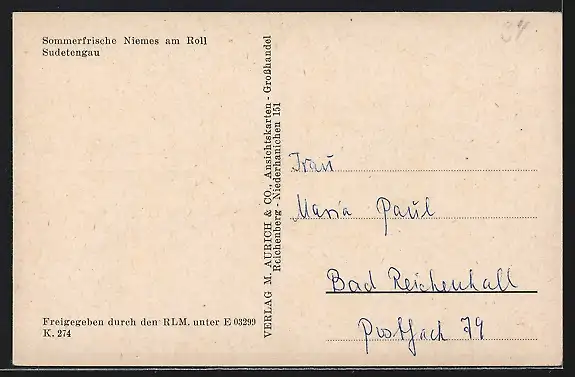 Sommerfrische Niemes am Roll
Sudetengau
Freigegeben durch den RLM. unter E 03299
K. 274
VERLAG M. AURICH & CO., Ansichtskarten - Großhandel
Reichenberg - Niederhanichen 151
94
Frau
Maria Paul
Bad Reichenhall
Postfach 79